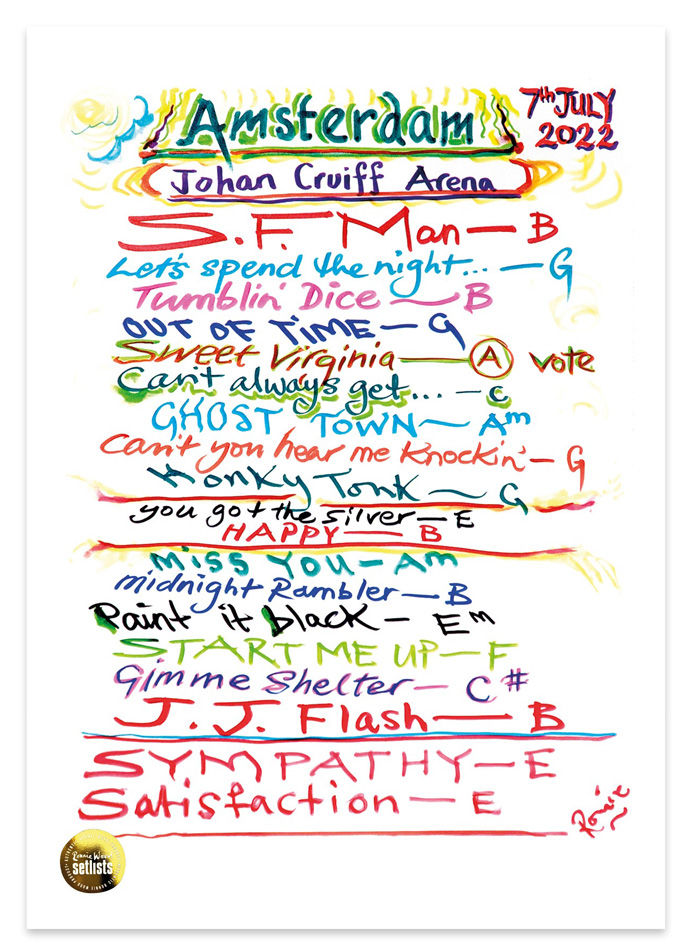 Amsterdam
7th JULY
2022
Johan Cruiff Arena
S.F. Man — B
Let's spend the night... — G
Tumblin' Dice — B
OUT OF TIME — G
Sweet Virginia — A vote
Can't always get... — C
GHOST TOWN — Am
Can't you hear me Knockin' — G
Honky Tonk — G
you got the silver — E
HAPPY — B
MISS YOU — Am
midnight Rambler — B
Paint it black — Em
START ME UP — F
Gimme Shelter — C#
J.J. Flash — B
SYMPATHY — E
Satisfaction — E
Ronnie
Ronnie Wood
setlists